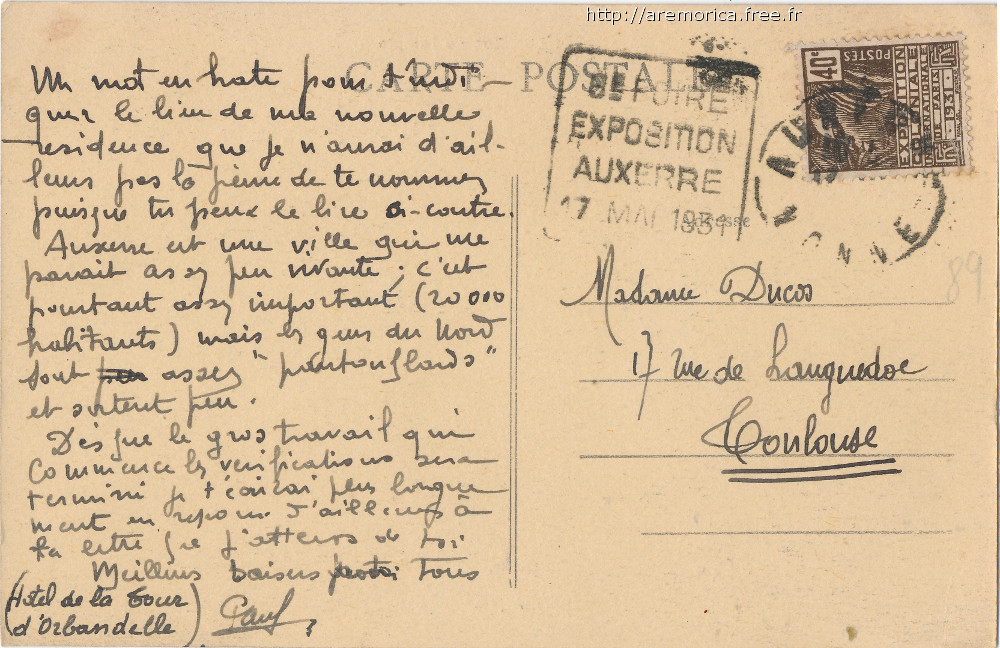 http://aremorica.free.fr
CARTE POSTALE
Un mot en hate pour t'indi-
quer le lieu de ma nouvelle
residence que je n'aurai d'ail-
leurs pas la peine de te nommer
puisque tu peux le lire ci-contre.
Auxerre est une ville qui me
parait assez peu vivante ; c'est
pourtant assez important (20 000
habitants) mais les gens du Nord
sont assez "pantouflards"
et sortent peu.
Dès que le gros travail qui
commence les verifications sera
terminé je t'écrirai plus longue
ment en reponse d'ailleurs à
ta lettre que j'attends de toi
Meilleurs baisers Tous
(Hotel de la tour
d'Orbandelle)
Paul
FOIRE
EXPOSITION
AUXERRE
17 MAI 1931
Adresse
40c
POSTES
EXPOSITION
COLONIALE
INTERNATIONALE
PARIS
1931
AU
YONNE
89
Madame Ducos
17 rue de Languedoc
Toulouse